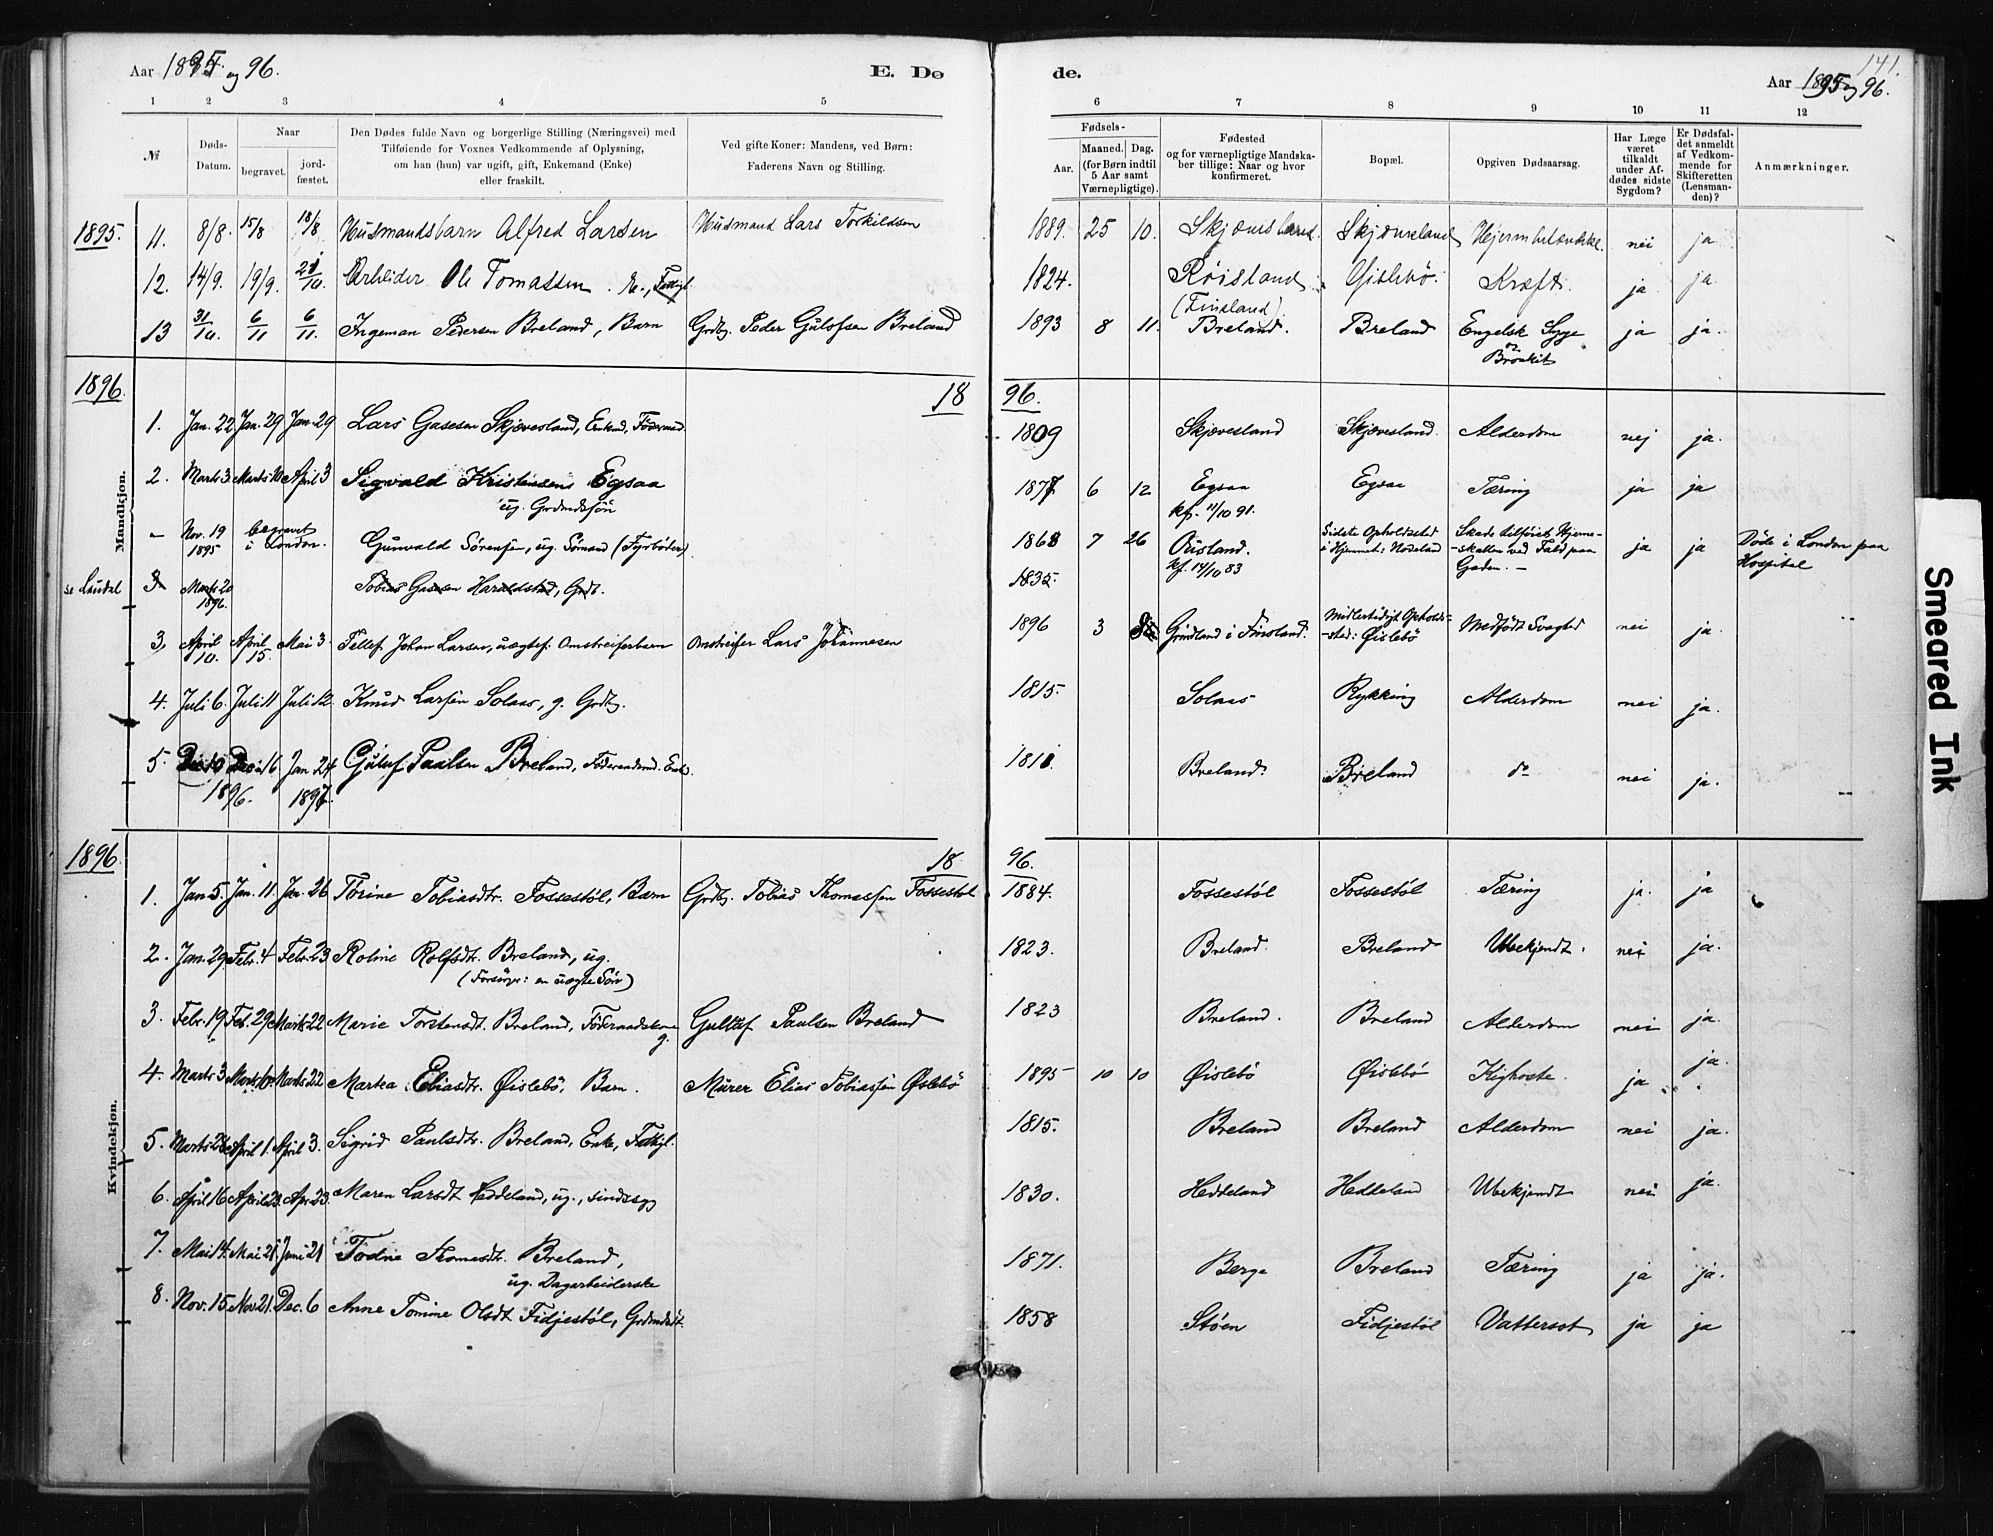 Aar 1895 og 96.
E. Dø
de.
141.
Aar 1895 og 96.
1 2 3 4 5 6 7 8 9 10 11 12
№
Døds-
Datum.
Naar
begravet.
jord-
fæstet.
Den Dødes fulde Navn og borgerlige Stilling (Næringsvei) med
Tilføiende for Voxnes Vedkommende af Oplysning,
om han (hun) var ugift, gift, Enkemand (Enke)
eller fraskilt.
Ved gifte Koner: Mandens, ved Børn:
Faderens Navn og Stilling.
Fødsels-
Aar.
Maaned. Dag.
(for Børn indtil
5 Aar samt
Værnepligtige).
Fødested
og for værnepligtige Mandska-
ber tillige: Naar og hvor
konfirmeret.
Bopæl.
Opgiven Dødsaarsag.
Har Læge
været
tilkaldt
under Af-
dødes sidste
Sygdom?
Er Dødsfal-
det anmeldt
af Vedkom-
mende for
Skifteretten
(Lensman-
den)?
Anmærkninger.
1895. 11. 8/8. 15/8 18/8 Husmandsbarn Alfred Larsen Husmand Lars Torkildsen 1889. 25 10. nei ja
12. 14/9. 19/9. Arbeider Ole Tomassen 1824. Røisland (Finsland) Øislebö. Kræft. ja ja
13 31/10. 6/11 6/11. Ingeman Pedersen Breland, Barn Grdbg. Peder Gulofsen Breland 1893 8 11. Breland. Breland Engelsk Syge
og Bronkit ja ja.
1896. 18 96.
Mandkjøn.
1. Jan. 22 Jan. 29 Jan. 29 Lars Gasesen Skjævesland, Enkmd, Föderaad. 1809 Skjævesland Skjævesland. Alderdom nej ja.
2. Marts 3 Marts 10 April 3 Sigvald Kristensens Egsaa
ug. Grdmdssön 1877 6 12 Egsaa Egsaa Tæring ja ja
kf. 11/10 91.
- Nov. 19 1895 begravet i London. Gunvald Sörensen, ug. Sömand (Fyrböder) 1868 7 26 Ousland.
kf. 14/10 83 Sidste Opholdssted
i Hjemmet: Nodeland Skade tilföiet Hjerne-
-skallen ved Fald paa
Gaden. - ja ja Döde i London paa
Hospital
se Laudal 3 Marts 20 1896. Tobias Gasesen Haraldstad, Grdb. 1832.
3, April 10. April 15. Mai 3. Tellef Johan Larsen, uægtef. Omstreiferbarn Omstreifer Lars Johannesen 1896 3 Grindland i Finsland. Midlertidigt Opholds-
-sted: Øislebö Medfödt Svaghed nei ja.
4. Juli 6. Juli 11 Juli 12. Knud Larsen Solaas, g. Grdbg. 1815. Solaas Rykking Alderdom nei ja.
5. Dec. 10 Dec. 16 Jan. 24 Guluf Paulsen Breland, Föderaadsmd. Enk. 1811. Breland. Breland do nei ja.
1896. 1897.
1896. 18 96.
Kvindekjøn.
1. Jan. 5. Jan. 11. Jan. 26 Törine Tobiasdtr. Fossestöl, Barn Grdbg. Tobias Thomassen Fossestöl 1884. Fossestöl Fossestöl Tæring ja. ja
2. Jan. 29 Febr. 4 Febr. 23 Roline Rolfsdtr. Breland, ug.
(Forsörger: en uægte Sön) 1823. Breland. Breland Ubekjendt. nei ja.
3. Febr. 19 Feb. 29 Marts 22 Marie Torstensdt. Breland, Föderaadskone
g. Gulluf Paulsen Breland 1823 Breland. Breland Alderdom nei ja.
4. Marts 3 Marts 6. Marts 22 Martea Eliasdtr. Øislebö, Barn. Murer Elias Tobiassen Øislebö 1895 10 10 Øislebö Øislebö Kighoste. ja ja.
5. April 1. April 3. Sigrid Paulsdtr. Breland, Enke, Fdkgl. 1815. Breland Breland Alderdom nei ja.
6. April 16 April 23. Apr. 23. Maren Larsdt Heddeland, ug., sindssyg 1830. Heddeland Heddeland Ubekjendt nei ja.
7. Mai 14. Mai 21. Juni 21 Todne Thomasdtr. Breland,
ug. Dagarbeiderske 1871. Berge Breland Tæring ja ja.
8. Nov. 15. Nov. 21. Dec. 6 Anne Tomine Olsdt Fidjestöl, Grdmdsdt. 1858 Stöen Fidjestöl Vattersot ja ja
Smeared Ink